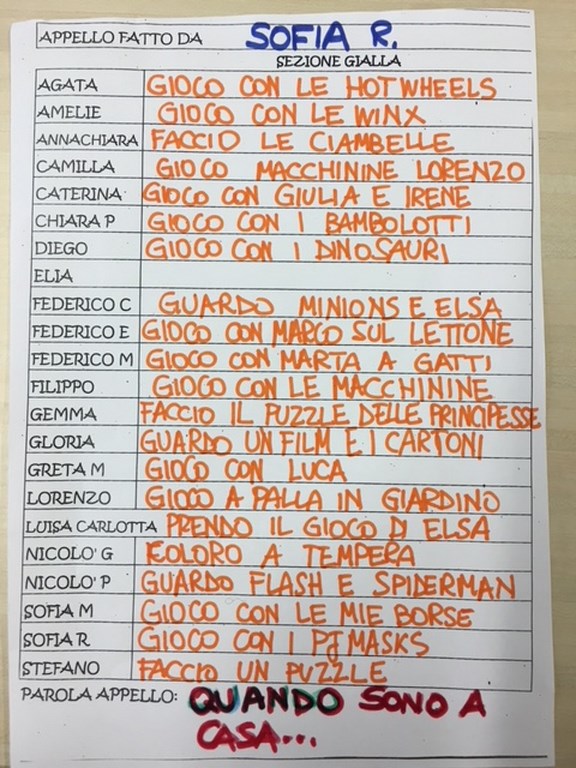 APPELLO FATTO DA SOFIA R.
SEZIONE GIALLA
AGATA GIOCO CON LE HOT WHEELS
AMELIE GIOCO CON LE WINX
ANNACHIARA FACCIO LE CIAMBELLE
CAMILLA GIOCO MACCHININE LORENZO
CATERINA GIOCO CON GIULIA E IRENE
CHIARA P GIOCO CON I BAMBOLOTTI
DIEGO GIOCO CON I DINOSAURI
ELIA
FEDERICO C GUARDO MINIONS E ELSA
FEDERICO E GIOCO CON MARCO SUL LETTONE
FEDERICO M GIOCO CON MARTA A GATTI
FILIPPO GIOCO CON LE MACCHININE
GEMMA FACCIO IL PUZZLE DELLE PRINCIPESSE
GLORIA GUARDO UN FILM E I CARTONI
GRETA M GIOCO CON LUCA
LORENZO GIOCO A PALLA IN GIARDINO
LUISA CARLOTTA PRENDO IL GIOCO DI ELSA
NICOLO' G COLORO A TEMPERA
NICOLO' P GUARDO FLASH E SPIDERMAN
SOFIA M GIOCO CON LE MIE BORSE
SOFIA R GIOCO CON I PJ MASKS
STEFANO FACCIO UN PUZZLE
PAROLA APPELLO: QUANDO SONO A
CASA...